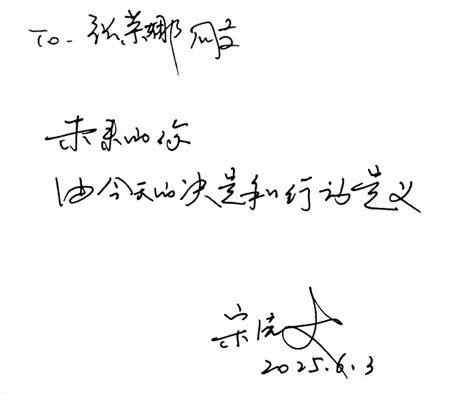 To. 张荣娜同学
未来的你
由今天的决定和行动定义
2025.6.3